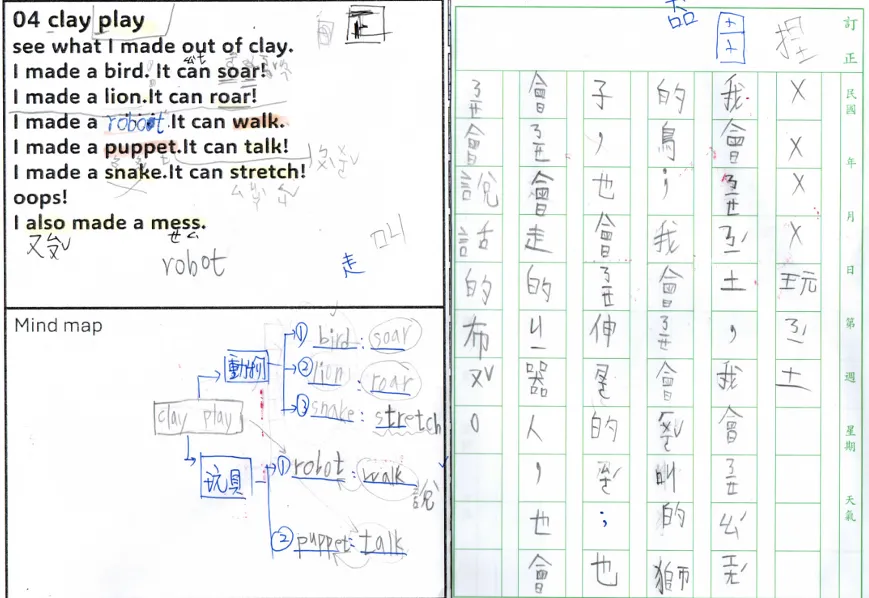 04 clay play
see what I made out of clay.
I made a bird. It can soar!
I made a lion.It can roar!
I made a robot.It can walk.
I made a puppet.It can talk!
I made a snake.It can stretch!
oops!
I also made a mess.
ㄡ
ㄝ
robot
走
叫
Mind map
clay play
動物
①bird:soar
②lion:roar
③snake:stretch
玩具
①robot:walk
說
②puppet:talk
器
土
捏
訂正
民國 年 月 日 第 週 星期 天氣
XXXX玩ㄋㄧ土
我會ㄋㄧㄝㄋㄧ土,我會ㄋㄧㄝ
的鳥;我會ㄋㄧㄝ會叫的獅
子,也會ㄋㄧㄝ伸尾的;也
會ㄋㄧㄝ會走的ㄐㄧ器人,也會
ㄋㄧㄝ會說話的布ㄡˇ。